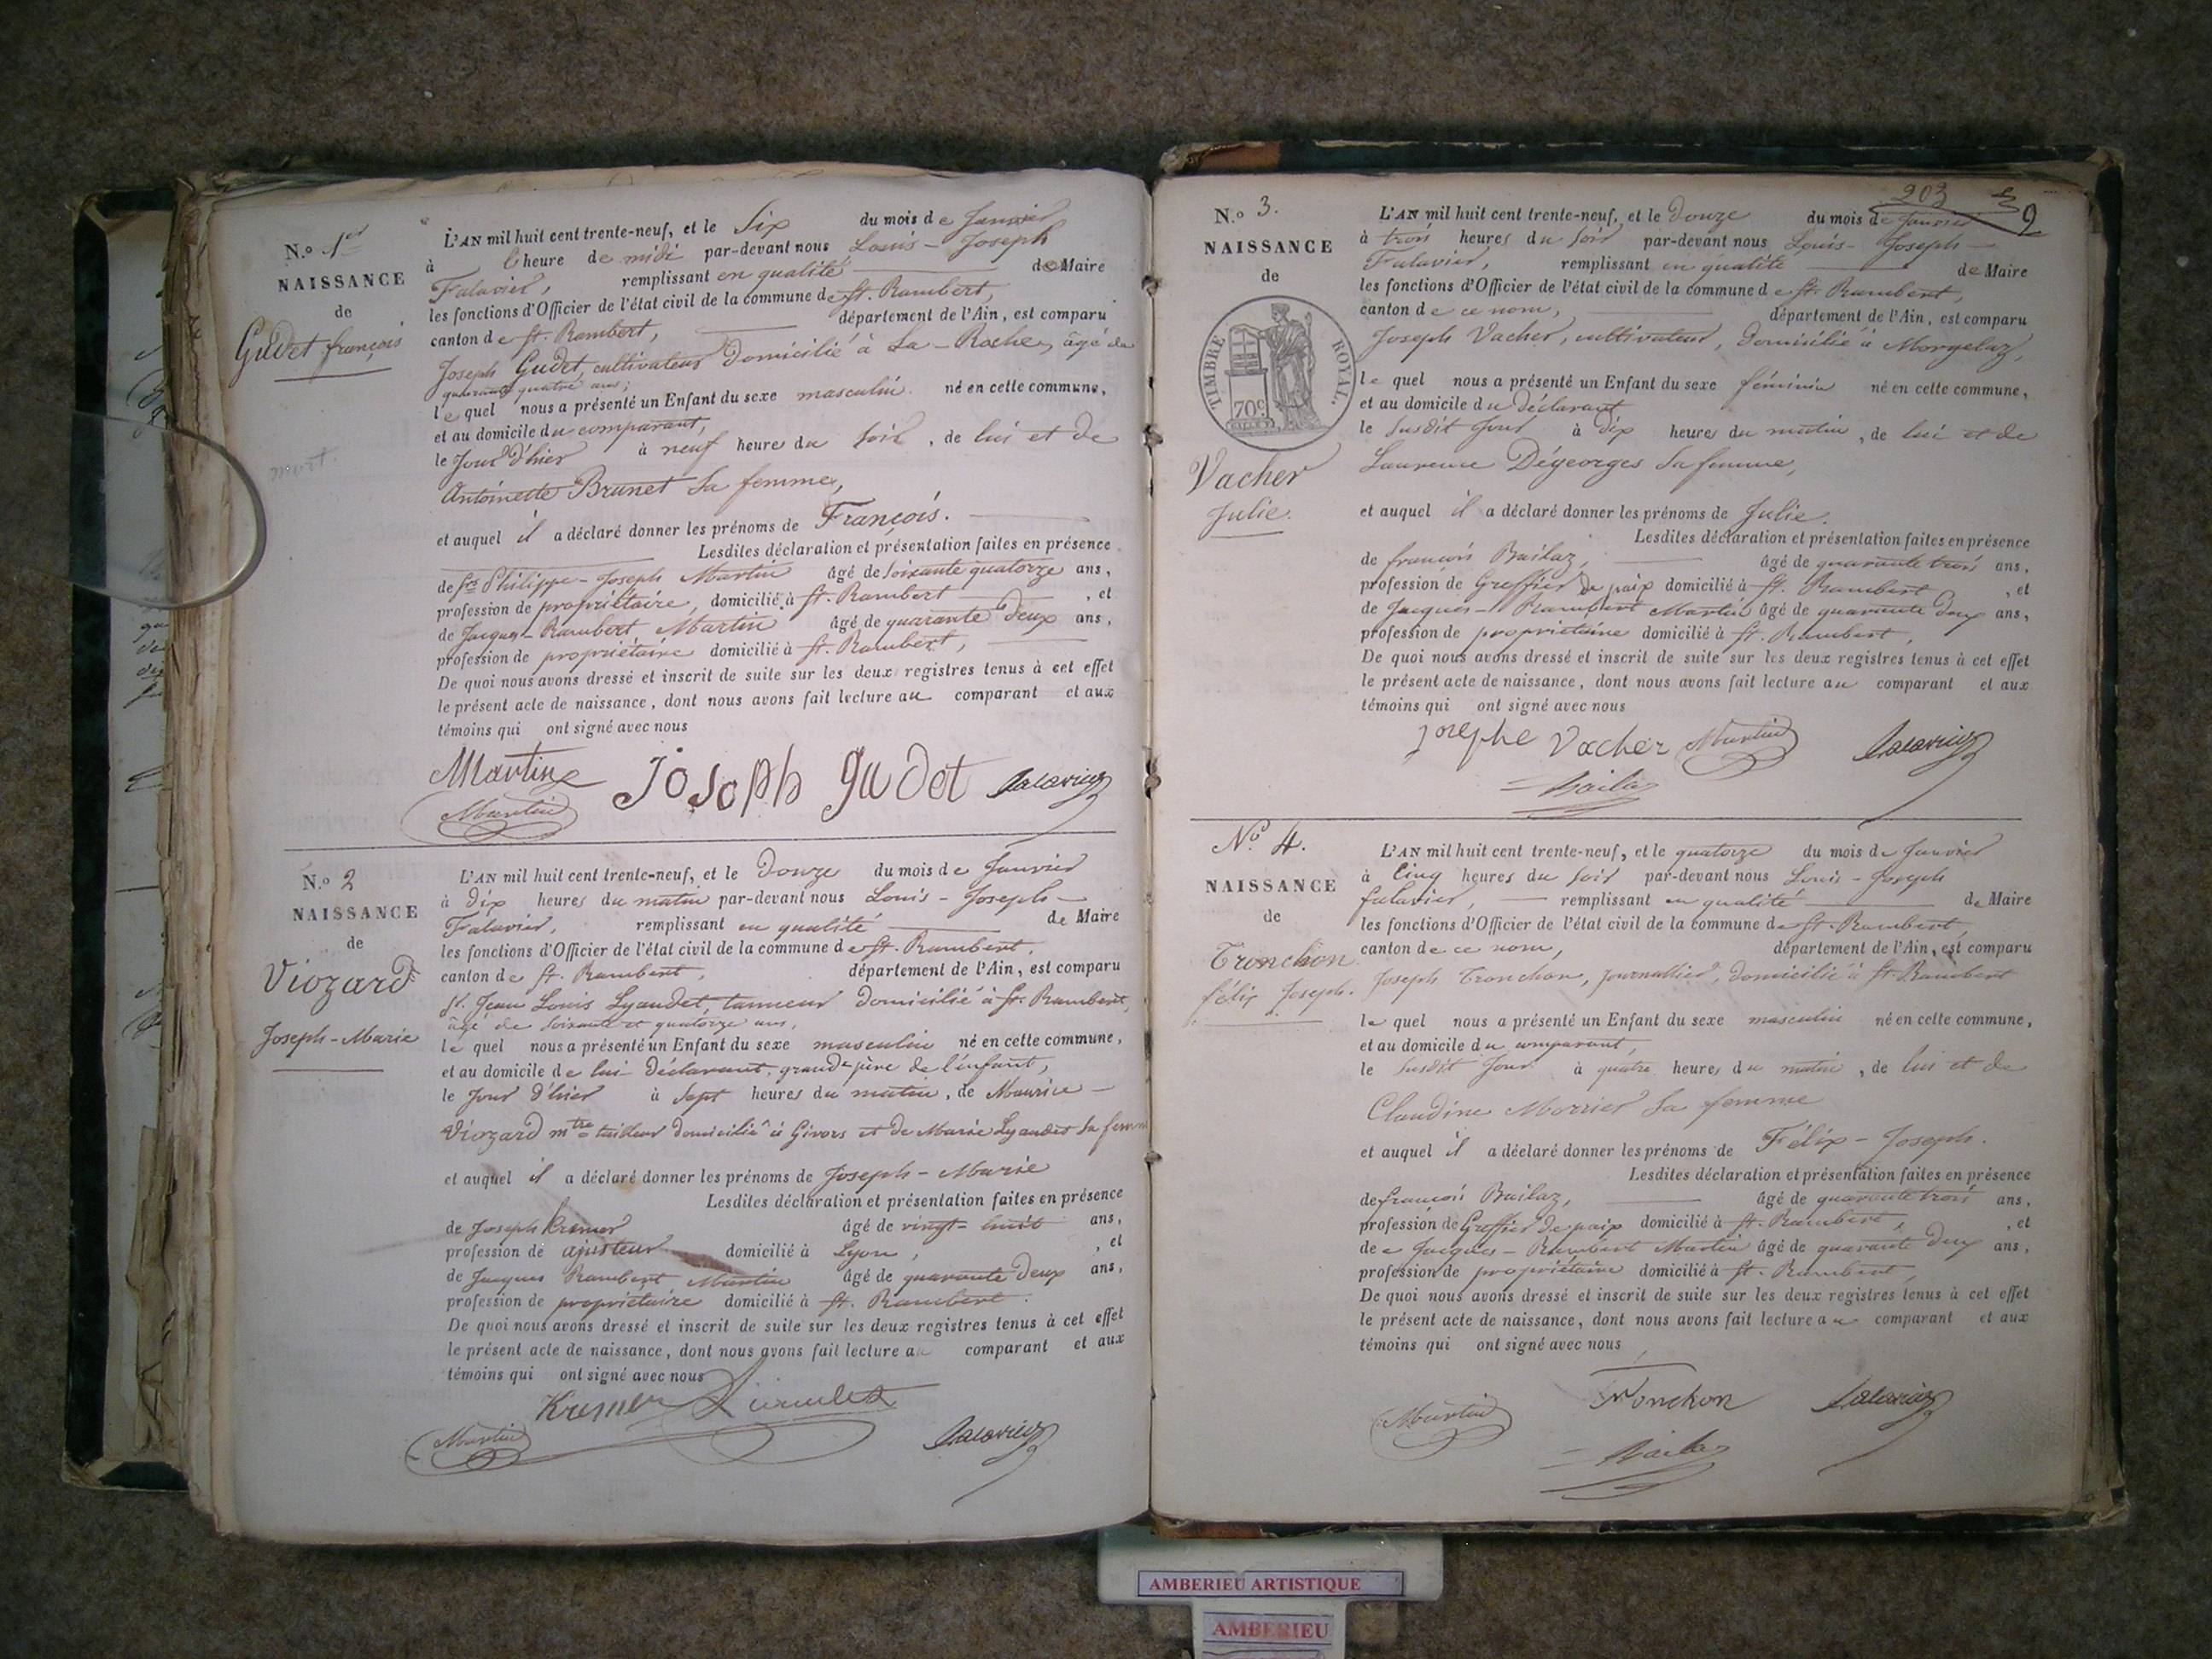 N.o 1er
NAISSANCE
de
Gudet françois
mort.
L'AN mil huit cent trente-neuf, et le Six du mois de Janvier
à l'heure de midi par-devant nous Louis-Joseph
Falavier, remplissant en qualité de Maire
les fonctions d'Officier de l'état civil de la commune de St. Rambert,
canton de St. Rambert, département de l'Ain, est comparu
Joseph Gudet, cultivateur domicilié à La-Roche, âgé de
quarante quatre ans;
lequel nous a présenté un Enfant du sexe masculin né en cette commune,
et au domicile du comparant,
le Jour d'hier à neuf heures du soir, de lui et de
Antoinette Brunet sa femme,
et auquel il a déclaré donner les prénoms de François.
Lesdites déclaration et présentation faites en présence
de Philippe-Joseph Martin âgé de soixante quatorze ans,
profession de propriétaire, domicilié à St. Rambert, et
de Jacques-Rambert Martin âgé de quarante deux ans,
profession de propriétaire domicilié à St. Rambert,
De quoi nous avons dressé et inscrit de suite sur les deux registres tenus à cet effet
le présent acte de naissance, dont nous avons fait lecture au comparant et aux
témoins qui ont signé avec nous
Martin Joseph gudet falavier
Martin
N.o 2
NAISSANCE
de
Viozard
Joseph-Marie
L'AN mil huit cent trente-neuf, et le Douze du mois de Janvier
à dix heures du matin par-devant nous Louis-Joseph-
Falavier, remplissant en qualité de Maire
les fonctions d'Officier de l'état civil de la commune de St. Rambert,
canton de St. Rambert, département de l'Ain, est comparu
Sr. Jean Louis Lyaudet, tanneur domicilié à St. Rambert,
âgé de soixante et quatorze ans,
lequel nous a présenté un Enfant du sexe masculin né en cette commune,
et au domicile de lui déclarant, grand-père de l'enfant,
le Jour d'hier à sept heures du matin, de Maurice-
Viozard mtre tailleur domicilié à Givors et de Marie Lyaudet sa femme
et auquel il a déclaré donner les prénoms de Joseph-Marie
Lesdites déclaration et présentation faites en présence
de Joseph Kremer âgé de vingt-huit ans,
profession de ajusteur domicilié à Lyon, et
de Jacques Rambert Martin âgé de quarante deux ans,
profession de propriétaire domicilié à St. Rambert.
De quoi nous avons dressé et inscrit de suite sur les deux registres tenus à cet effet
le présent acte de naissance, dont nous avons fait lecture au comparant et aux
témoins qui ont signé avec nous
Kremer
Martin falavier
203
2
N.o 3.
NAISSANCE
de
TIMBRE ROYAL.
70c
Vacher
Julie.
L'AN mil huit cent trente-neuf, et le Douze du mois de Janvier
à trois heures du soir par-devant nous Louis-Joseph-
Falavier, remplissant en qualité de Maire
les fonctions d'Officier de l'état civil de la commune de St. Rambert,
canton de ce nom, département de l'Ain, est comparu
Joseph Vacher, cultivateur, domicilié à Morgelaz,
lequel nous a présenté un Enfant du sexe féminin né en cette commune,
et au domicile du déclarant
le susdit jour à dix heures du matin, de lui et de
Laurence Dégeorges sa femme,
et auquel il a déclaré donner les prénoms de Julie.
Lesdites déclaration et présentation faites en présence
de françois Bailaz, âgé de quarante trois ans,
profession de Greffier de paix domicilié à St. Rambert, et
de Jacques-Rambert Martin âgé de quarante deux ans,
profession de propriétaire domicilié à St. Rambert,
De quoi nous avons dressé et inscrit de suite sur les deux registres tenus à cet effet
le présent acte de naissance, dont nous avons fait lecture au comparant et aux
témoins qui ont signé avec nous
Josephe Vacher Martin falavier
Bailaz
No. 4.
NAISSANCE
de
Tronchon
félix Joseph.
L'AN mil huit cent trente-neuf, et le quatorze du mois de Janvier
à Cinq heures du soir par-devant nous Louis-Joseph
falavier, remplissant en qualité de Maire
les fonctions d'Officier de l'état civil de la commune de St. Rambert,
canton de ce nom, département de l'Ain, est comparu
Joseph Tronchon, journallier, domicilié à St. Rambert
lequel nous a présenté un Enfant du sexe masculin né en cette commune,
et au domicile du comparant,
le susdit jour à quatre heures du matin, de lui et de
Claudine Morrier sa femme
et auquel il a déclaré donner les prénoms de Félix-Joseph.
Lesdites déclaration et présentation faites en présence
de françois Bailaz, âgé de quarante trois ans,
profession de Greffier de paix domicilié à St. Rambert, et
de Jacques-Rambert Martin âgé de quarante deux ans,
profession de propriétaire domicilié à St. Rambert,
De quoi nous avons dressé et inscrit de suite sur les deux registres tenus à cet effet
le présent acte de naissance, dont nous avons fait lecture au comparant et aux
témoins qui ont signé avec nous
Martin Tronchon falavier
Bailaz
AMBERIEU ARTISTIQUE
AMBERIEU